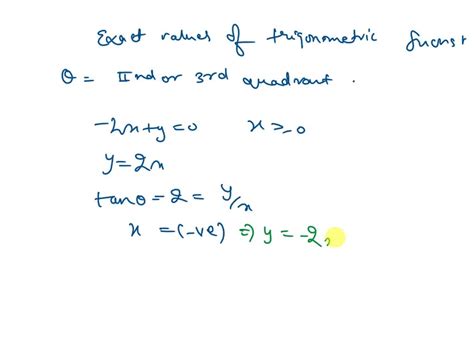 Exact values of trigonometric funcst
θ = IInd or 3rd quadrant .
-2x+y=0 x≥0
y=2x
tanθ=2= y/x
x =(-ve) ⇒ y = -2